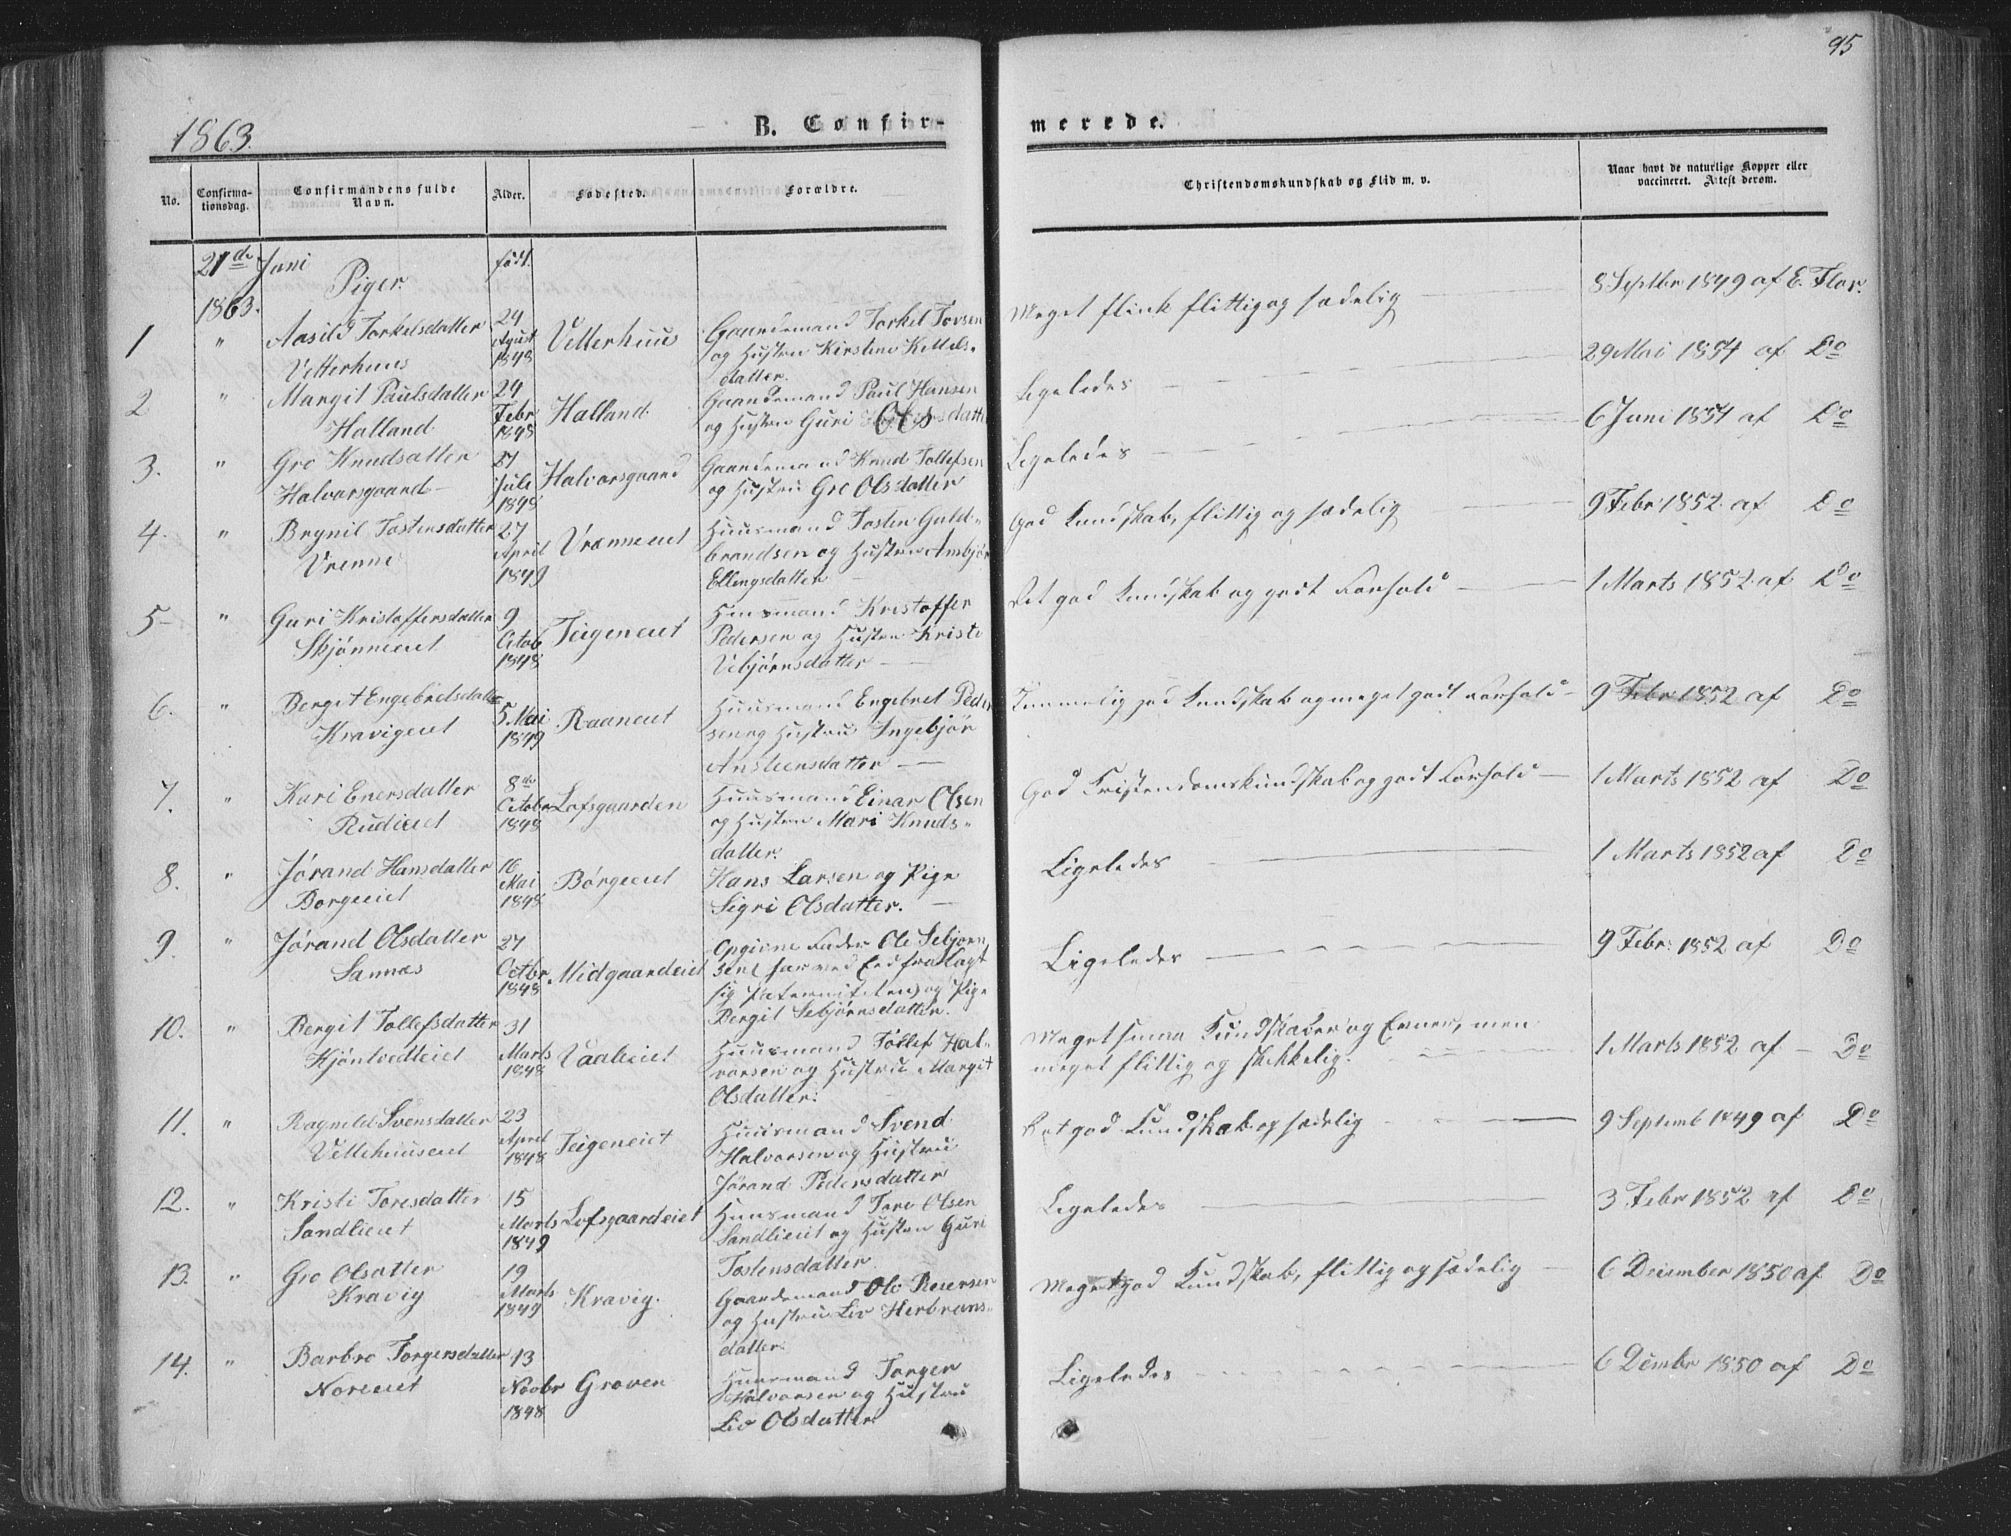 95
1863.
B. Confir-
merede.
No.
Confirma-
tionsdag.
Confirmandens fulde
Navn.
Alder.
Fødested.
Forældre.
Christendomskundskab og Flid m. v.
Naar havt de naturlige Kopper eller
vaccineret. Attest derom.
21de Juni
1863.
Piger.
født.
1 " Aasild Torkelsdatter
Vetterhuus
24
August
1848
Vetterhuus
Gaardemand Torkel Tovsen
og Hustru Kirstine Kittels-
datter.
Meget flink flittig og sædelig
8 Septbr 1849 af E. Flor.
2 " Margit Paulsdatter
Halland
24
Febr
1848
Halland
Gaardemand Paul Hansen
og Hustru Guri Olsdatter
Ligeledes
29 Mai 1854 af Do
3. " Gro Knudsatter
Halvorsgaard
21
Juli
1848
Halvorsgaard
Gaardemand Knud Tollefsen
og Hustru Gro Olsdatter
Ligeledes
6 Juni 1854 af Do
4. " Brynil Tostensdatter
Vrenne
27
April
1849
Vrænneeiet
Huusmand Tosten Guld-
brandsen og Hustru Ambjør
Ellingsdatter
God Kundskab, flittig og sædelig
9 Febr 1852 af Do
5 " Guri Kristoffersdatter
Skjønneeiet
9
Octob
1848
Teigeneiet
Huusmand Kristoffer
Pedersen og Hustru Kristi
Vebjørnsdatter
Ret god Kundskab og godt Forhold
1 Marts 1852 af Do
6. " Bergit Engebretsdatter
Kravigeiet
5 Mai
1849
Raaneiet
Huusmand Engebret Peder
sen og Hustru Ingebjør
Ansteensdatter
Temmelig god Kundskab og meget godt Forhold
9 Febr 1852 af Do
7. " Kari Enersdatter
Rudieiet
8de
Octobr
1848
Lofsgaarden
Huusmand Einar Olsen
og Hustru Mari Knuds-
datter.
God Kristendomskundskab og godt Forhold
1 Marts 1852 af Do
8. " Jørand Hansdatter
Borgeeiet
16
Mai
1848
Børgeeiet
Hans Larsen og Pige
Sigri Olsdatter.
Ligeledes
1 Marts 1852 af Do
9. " Jørand Olsdatter
Sannæs
27
Octbr
1848
Midgaardeiet
Opgivne Fader Ole Sebjørn
sen (har ved Eed fralagt
sig Paterniteten) og Pige
Bergit Sebjørnsdatter.
Ligeledes
9 Febr. 1852 af Do
10. " Bergit Tollefsdatter
Hjøntvedteiet
31
Marts
1848
Vaalieiet
Huusmand Tollef Hal-
vorsen og Hustru Margit
Olsdatter.
Meget smaa Kundskaber og Evner, men
meget flittig og skikkelig.
1 Marts 1852 af Do
11. " Ragnild Svensdatter
Vettehuuseiet
23
April
1848
Teigeneiet
Huusmand Svend
Halvorsen og Hustru
Jørand Pedersdatter
Ret god Kundskab og sædelig
9 Septemb 1849 af Do
12. " Kristi Toresdatter
Sandlieeiet
15
Marts
1849
Lofsgaardeiet
Huusmand Tore Olsen
Sandlieeiet og Hustru Guri
Tostensdatter.
Ligeledes
3 Febr 1852 af Do
13. " Gro Olsatter
Kravig
19
Marts
1849
Kravig.
Gaardemand Olv Reiersen
og Hustru Liv Herbrans-
datter.
Meget god Kundskab, flittig og sædelig
6 December 1850 af Do
14. " Barbro Torgersdatter
Noreeiet
13
Novbr
1848
Groven
Huusmand Torger
Halvorsen og Hustru
Liv Olsdatter.
Ligeledes
6 Dembr 1850 af Do